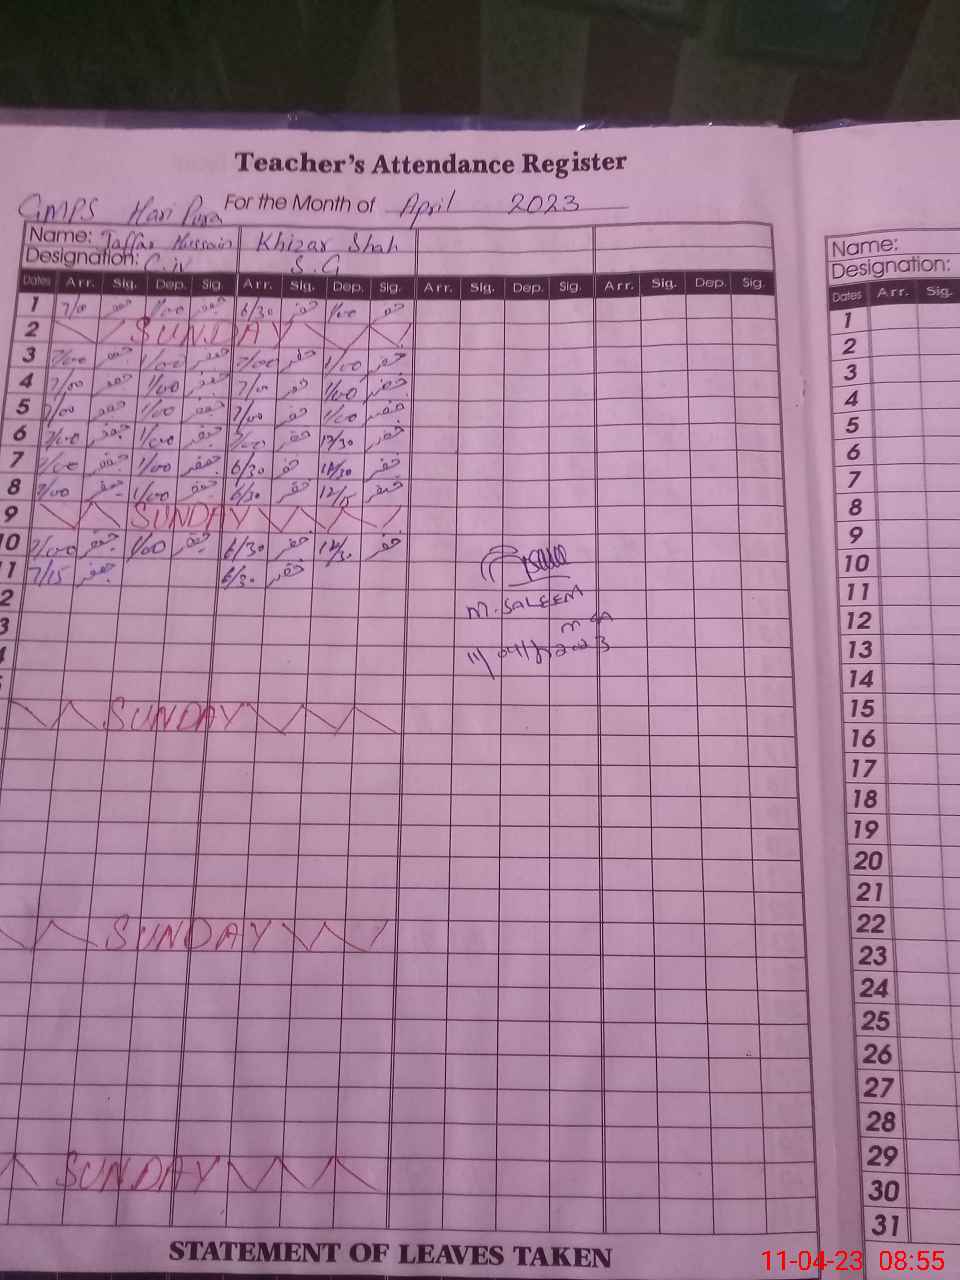 Teacher's Attendance Register
GMPS Hari Pura For the Month of April 2023
Name: Jaffar Hussain Khizar Shah
Designation: S.G
Dates Arr. Sig. Dep. Sig. Arr. Sig. Dep. Sig. Arr. Sig. Dep. Sig. Arr. Sig. Dep. Sig.
1 7/00 جعفر 1/00 جعفر 6/30 خضر 1/00 خضر
2 SUNDAY
3 7/00 جعفر 1/00 جعفر 7/00 خضر 1/00 خضر
4 7/00 جعفر 1/00 جعفر 7/00 خضر 1/00 خضر
5 7/00 جعفر 1/00 جعفر 7/00 خضر 1/00 خضر
6 7/00 جعفر 1/00 جعفر 7/00 خضر 12/30 خضر
7 7/00 جعفر 1/00 جعفر 6/30 خضر 12/30 خضر
8 7/00 جعفر 1/00 جعفر 6/30 خضر 12/15 خضر
9 SUNDAY
10 7/00 جعفر 1/00 جعفر 6/30 خضر 12/30 خضر
11 7/15 جعفر 6/30 خضر
2
3
4
M. SALEEM
11/04/2023
SUNDAY
SUNDAY
SUNDAY
STATEMENT OF LEAVES TAKEN
Name:
Designation:
Dates Arr. Sig.
1
2
3
4
5
6
7
8
9
10
11
12
13
14
15
16
17
18
19
20
21
22
23
24
25
26
27
28
29
30
31
11-04-23 08:55